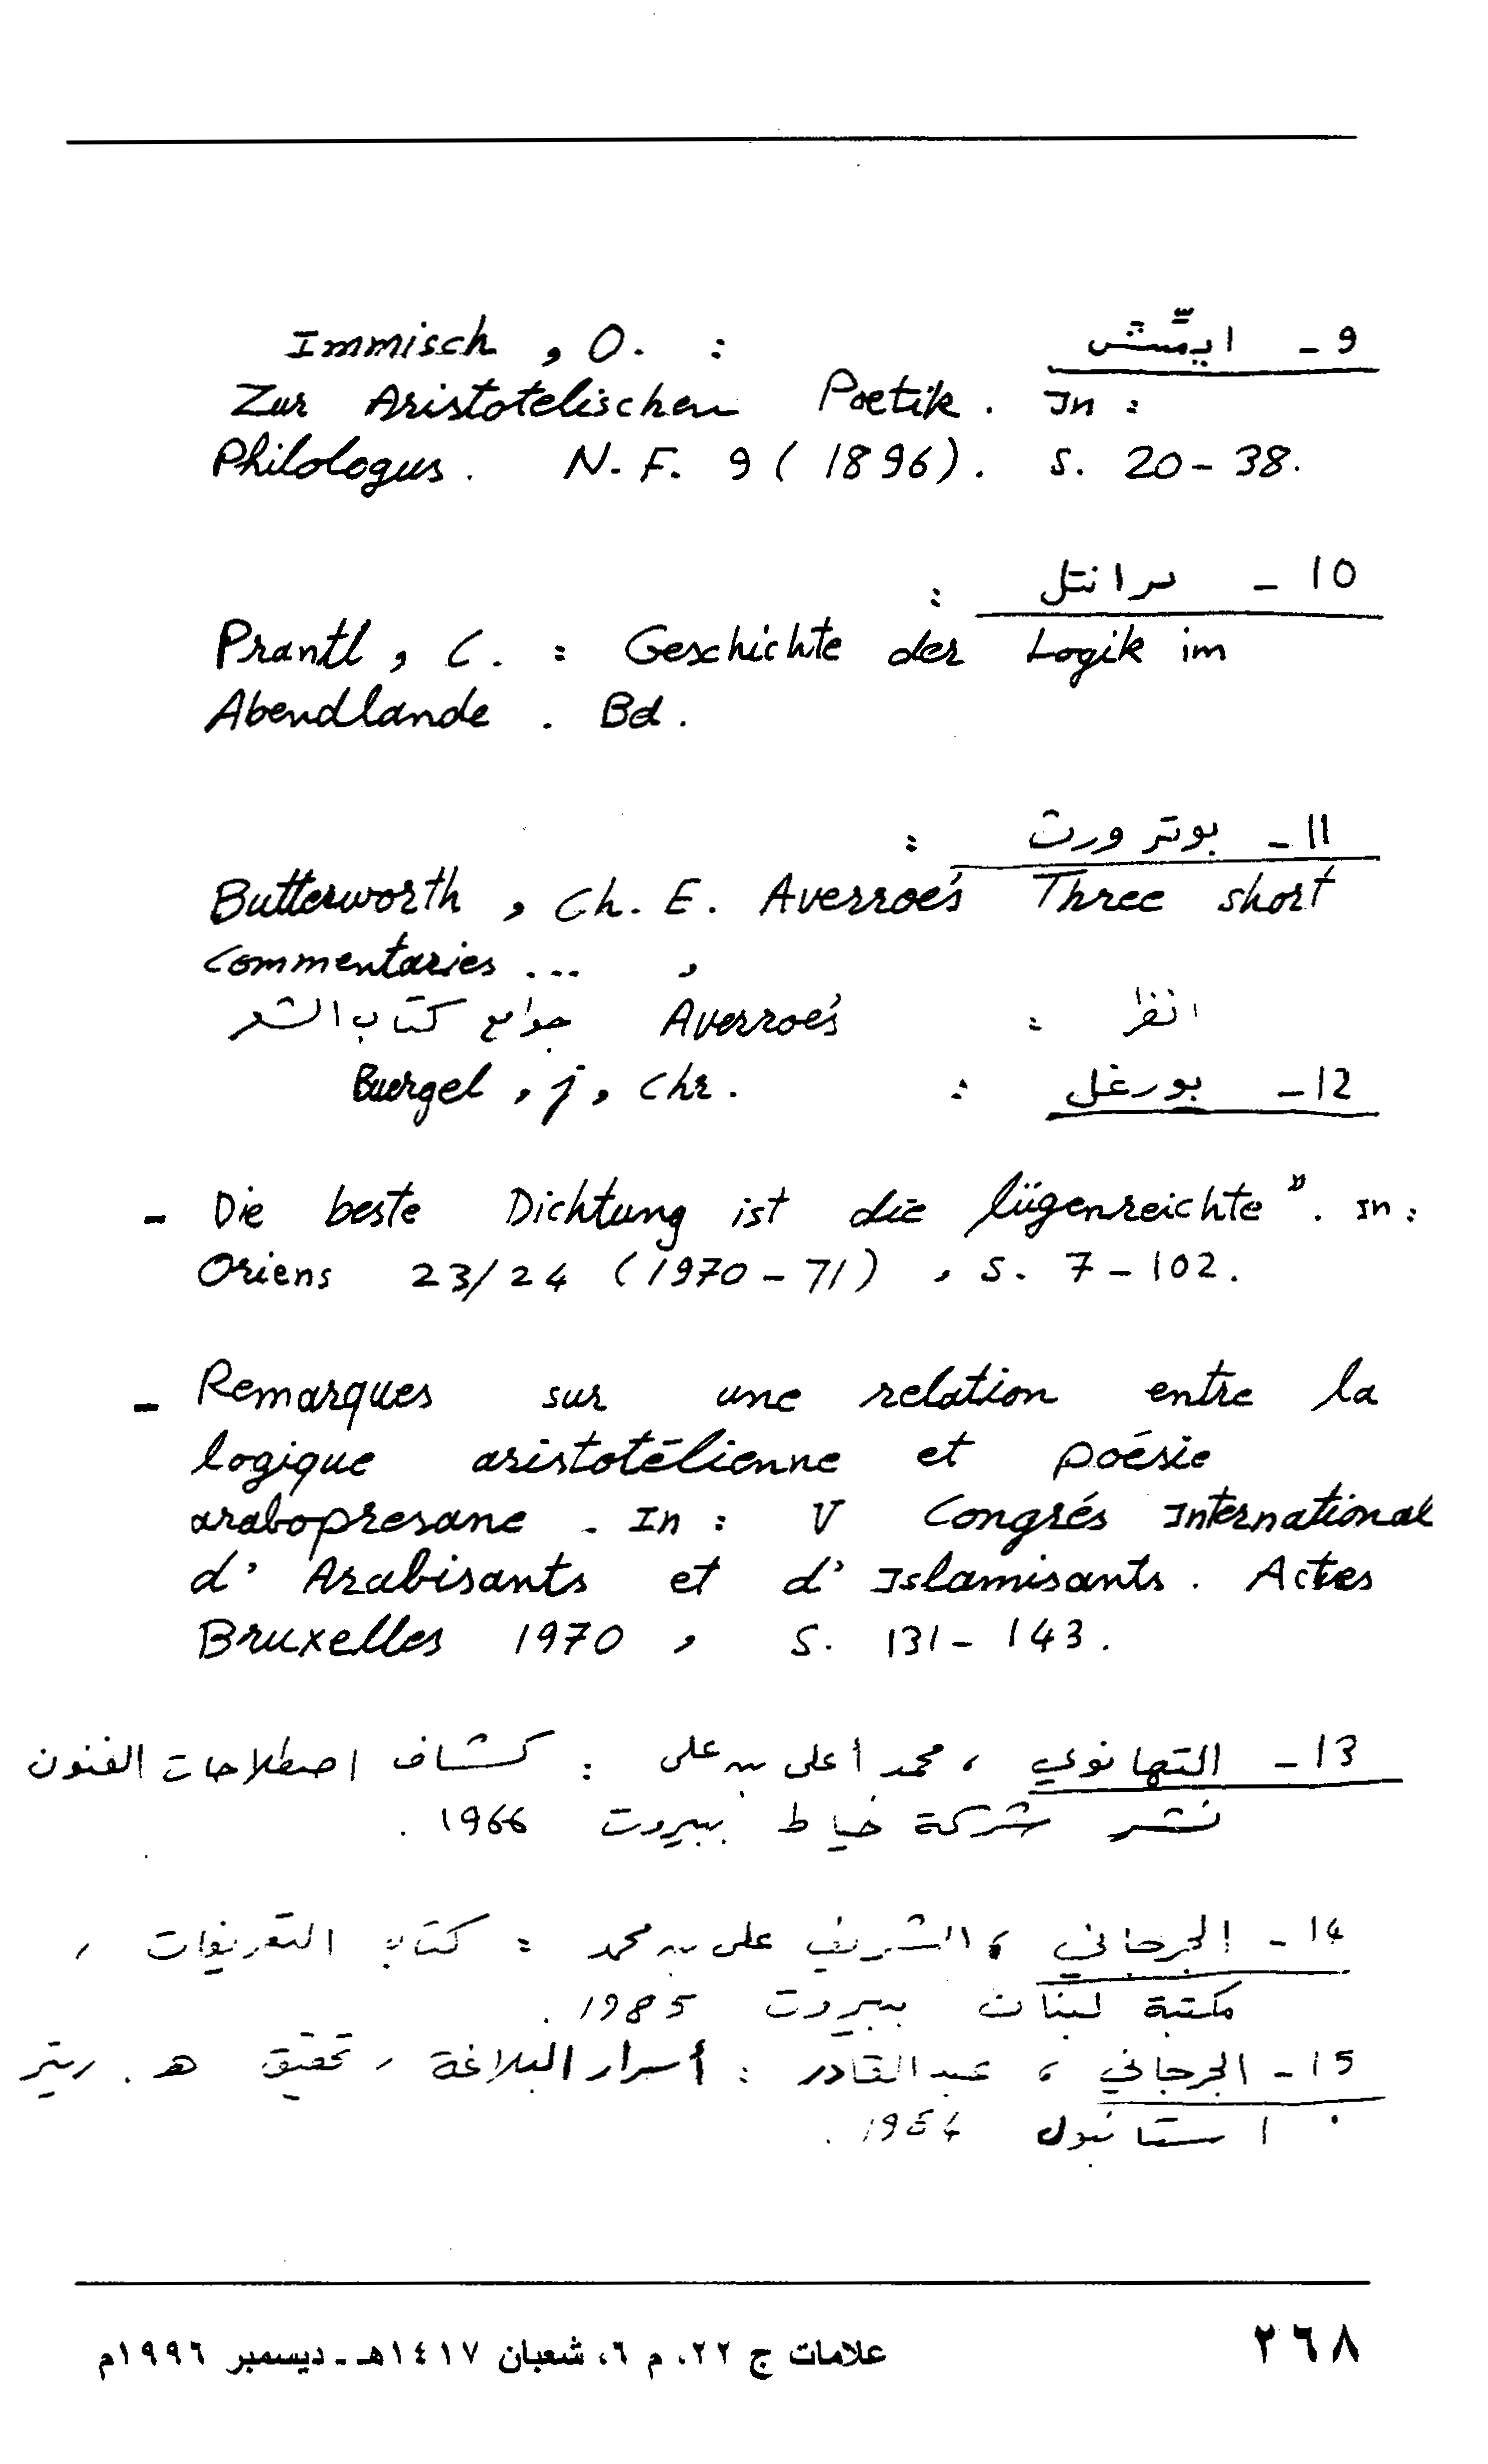 9 - ايمّش : Immisch, O.
Zur Aristotelischen Poetik. In:
Philologus. N.F. 9 (1896). S. 20-38.
10 - برانتل :
Prantl, C. : Geschichte der Logik im
Abendlande. Bd.
11 - بوترورث :
Butterworth, Ch. E. Averroe's Three short
Commentaries ... ,
انظر : Averroe's جوامع كتاب الشعر
12 - بورغل : Buergel, j, Chr.
- Die beste Dichtung ist die lügenreichte". In:
Oriens 23/24 (1970-71), S. 7-102.
- Remarques sur une relation entre la
logique aristotélienne et poésie
arabopresane - In: V Congrés International
d' Arabisants et d' Islamisants. Actes
Bruxelles 1970, S. 131-143.
13 - التهانوي ، محمد أعلى بن على : كشاف اصطلاحات الفنون
نشر شركة خياط ببيروت 1966 .
14 - الجرجاني ، الشريف على بن محمد : كتاب التعريفات ،
مكتبة لبنان ببيروت 1985 .
15 - الجرجاني ، عبدالقادر : أسرار البلاغة ، تحقيق هـ . ريتر
استانبول 1954 .
٢٦٨
علامات ج ٢٢، م ٦، شعبان ١٤١٧هـ - ديسمبر ١٩٩٦م